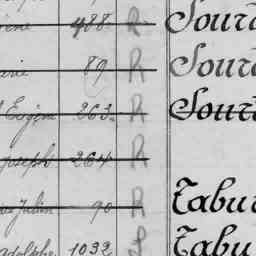 488 R Sour
89 R Sour
Eugèn 263 R Sour
Joseph 264 R
Julien 90 R Tabu
Adolphe 1032 Tabu